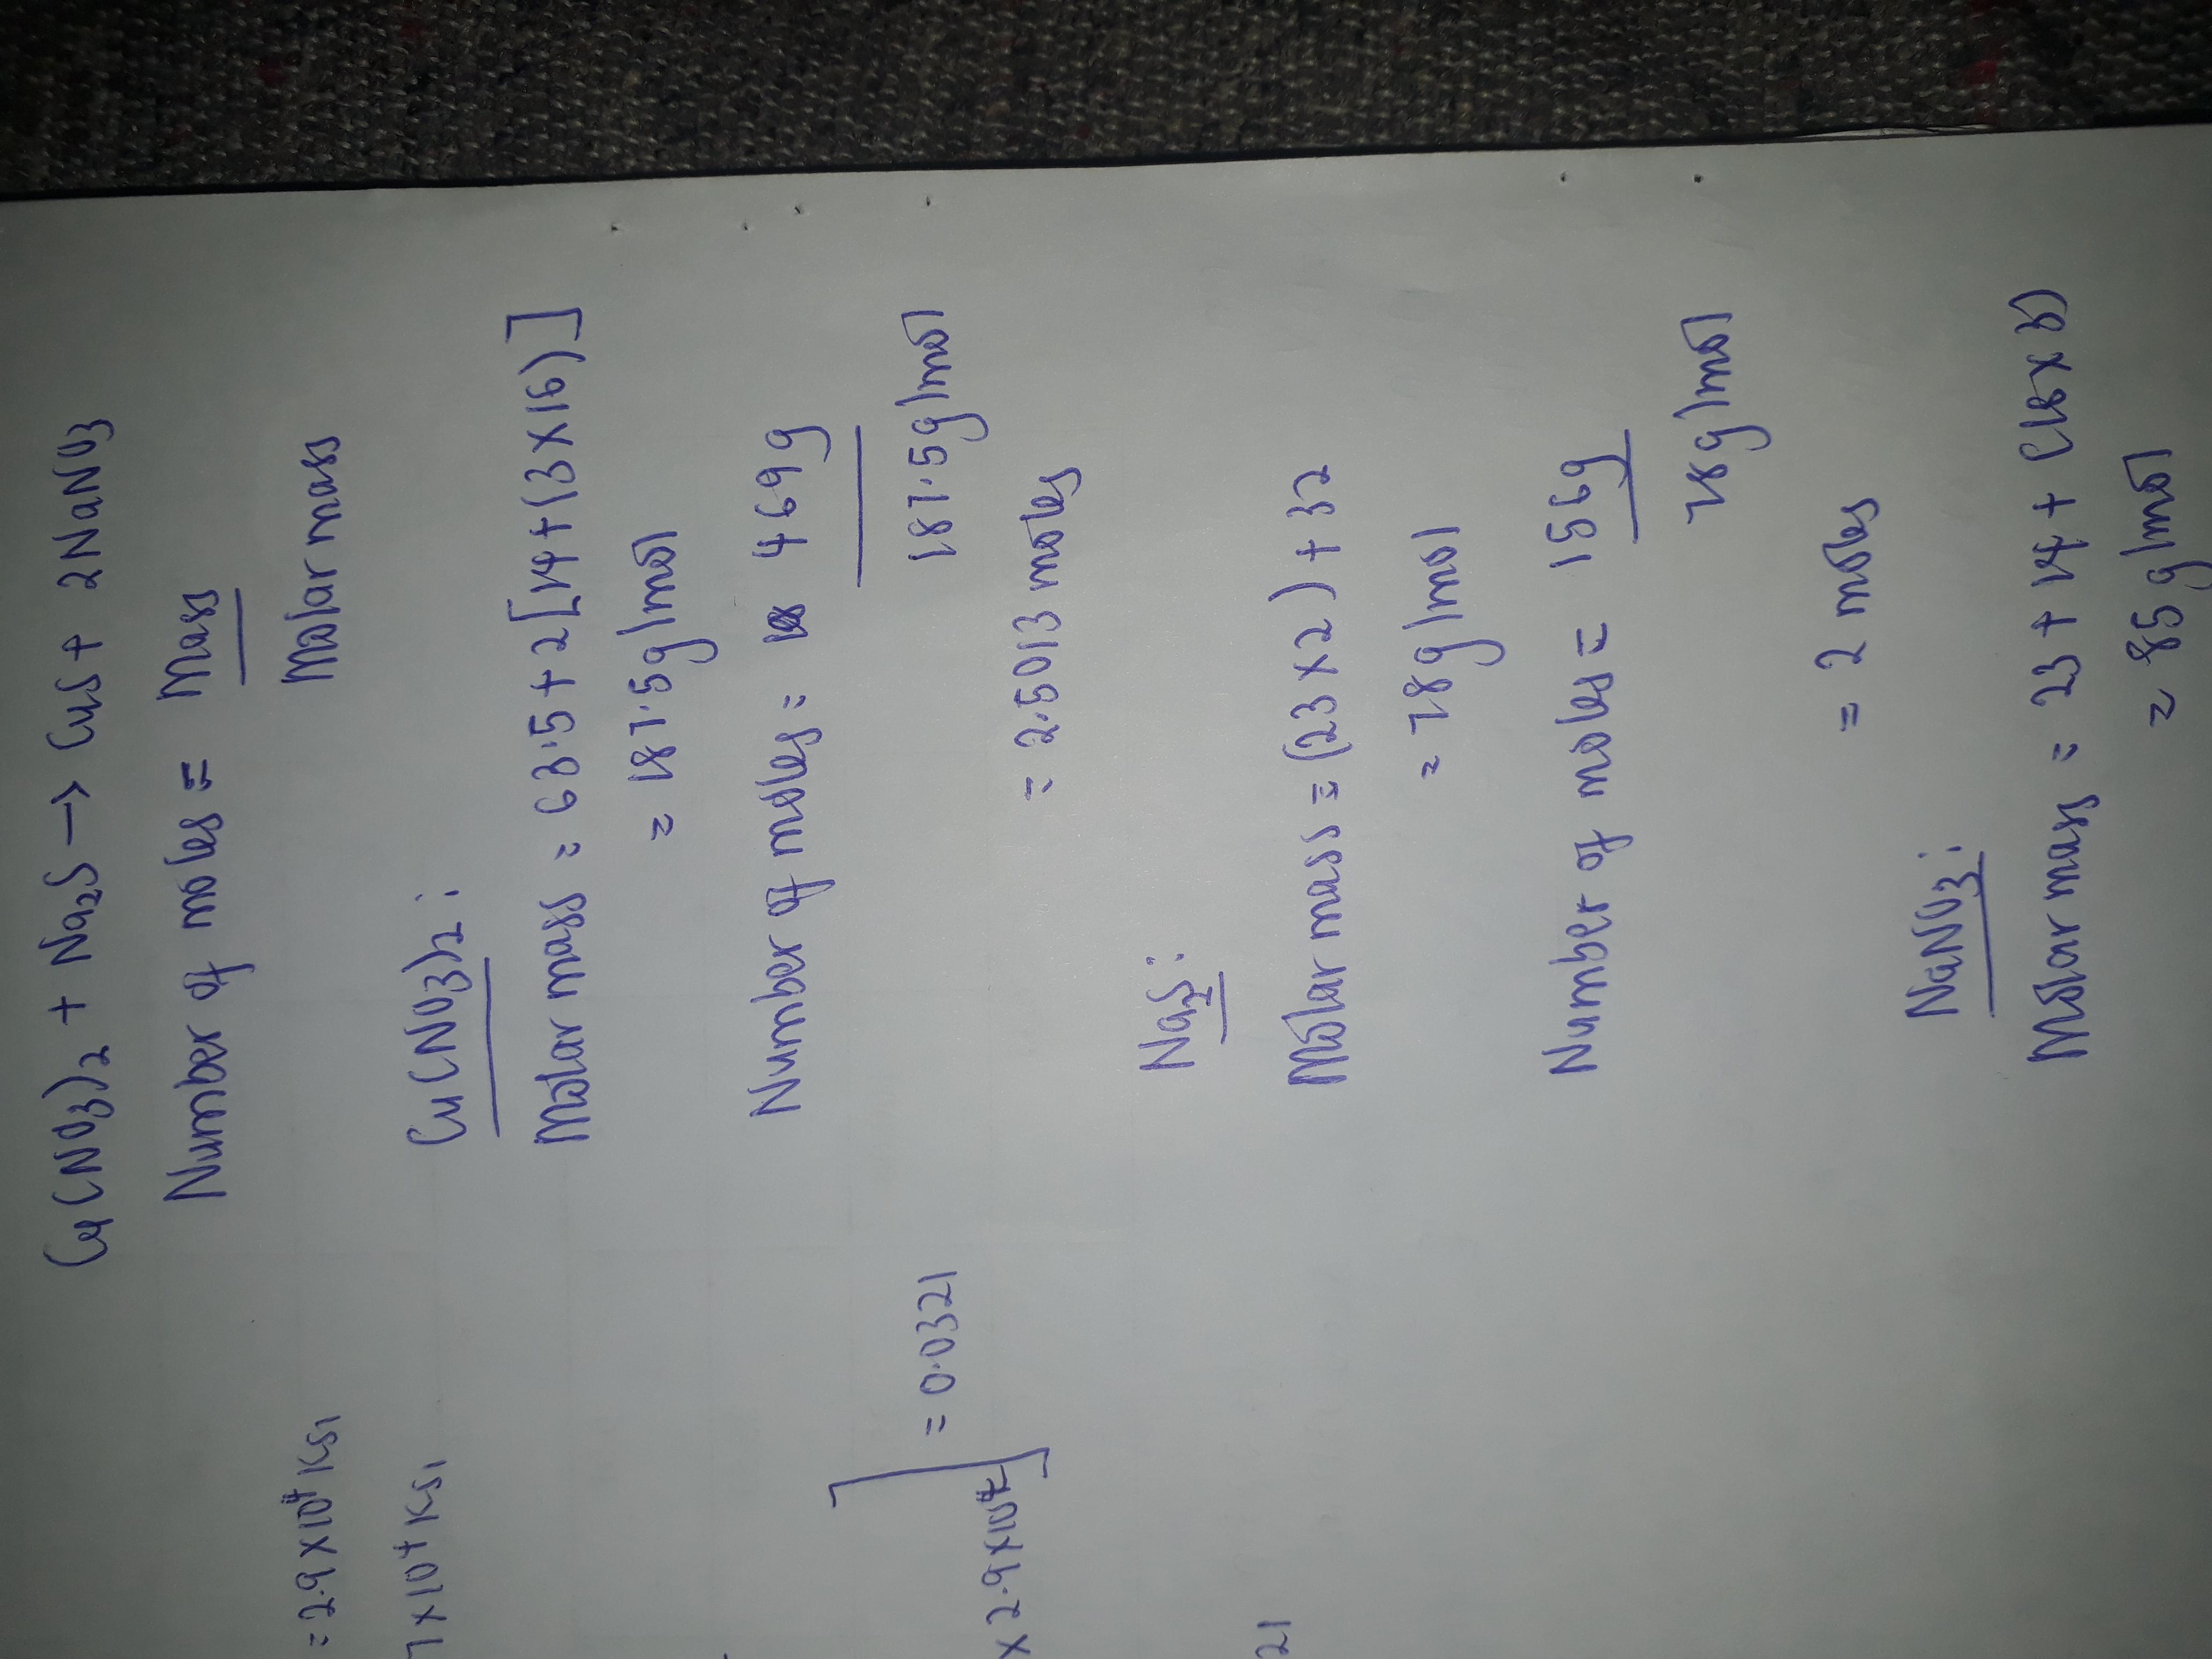 Cu(NO3)2 + Na2S → CuS + 2NaNO3
Number of moles = Mass
Molar mass
Cu(NO3)2 :
Molar mass = 63.5 + 2[14+(3×16)]
= 187.5g/mol
Number of moles = 469g
187.5g/mol
= 2.5013 moles
Na2S :
Molar mass = (23×2) + 32
= 78g/mol
Number of moles = 156g
78g/mol
= 2 moles
NaNO3 :
Molar mass = 23 + 14 + (16×3)
= 85g/mol
= 2.9×10⁴ ksi
7×10⁴ ksi
] = 0.0321
× 2.9×10⁴
21